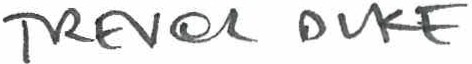 TREVOR DUKE